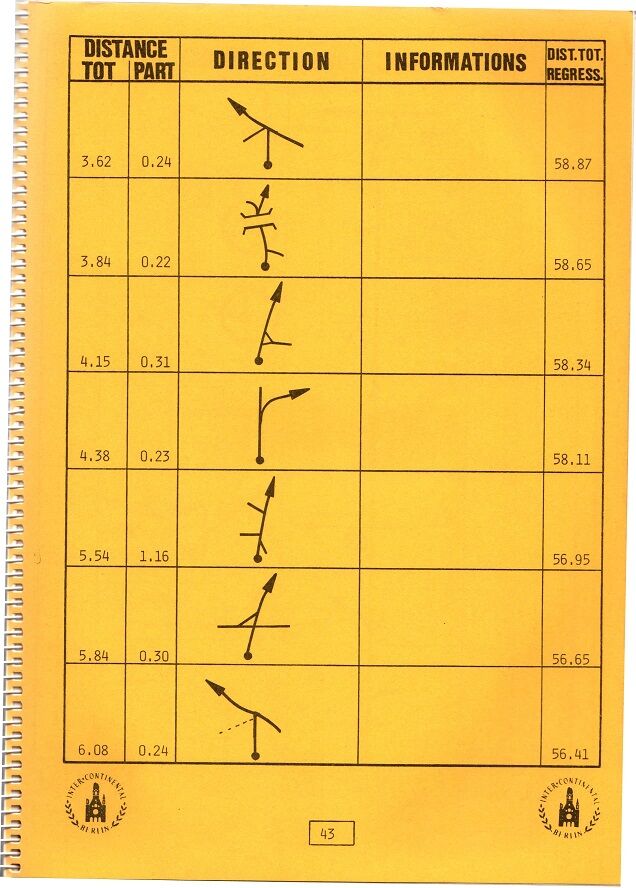 DISTANCE
TOT PART
DIRECTION
INFORMATIONS
DIST. TOT.
REGRESS.
3.62 0.24 58.87
3.84 0.22 58.65
4.15 0.31 58.34
4.38 0.23 58.11
5.54 1.16 56.95
5.84 0.30 56.65
6.08 0.24 56.41
INTER·CONTINENTAL
BERLIN
43
INTER·CONTINENTAL
BERLIN